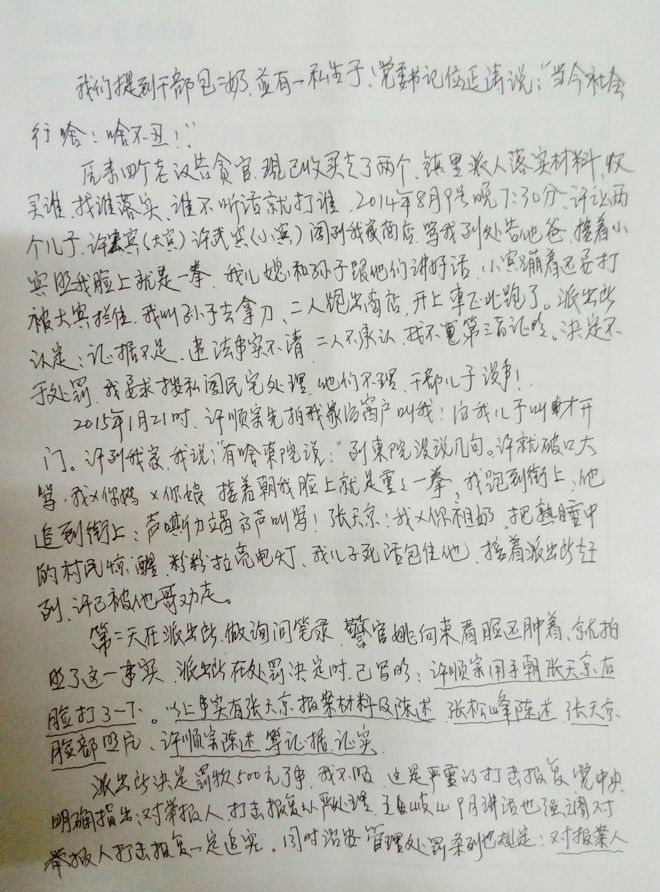 我们提到干部包二奶,并有一私生子!党委书记位延涛说:"当今社会
行啥!啥不丑!"
原来四个老汉告贪官,现已收买去了两个,镇里派人落实材料,收
买谁,找谁落实,谁不听话就打谁,2014年8月9号晚7:30分,许让两
个儿子,许宾(大宾)许武宾(小宾)闯到我家商店,骂我到处告他爸,接着小
宾照我脸上就是一拳,我儿媳和孙子跟他们讲好话,小宾蹦着还要打
被大宾拦住,我叫孙子去拿刀,二人跑出商店,开上车正北跑了。派出所
认定:证据不足,违法事实不清,二人不承认,我不第三者证明。决定不
于处罚,我要求按私闯民宅处理,他们不理,干部儿子没事!
2015年1月21时,许顺宗先拍我家临商户叫我!后我儿子叫才开
门。许到我家,我说:"有啥东院说:"到东院没说几句。许就破口大
骂,我×你妈×你娘,接着朝我脸上就是重重一拳,我跑到街上,他
追到街上:声嘶力竭高声叫骂!张天京!我×你祖奶,把熟睡中
的村民惊醒,粉粉拉亮电灯,我儿子死活包住他,接着派出所赶
到,许已被他哥劝走。
第二天在派出所,做询问笔录,警官姚向东看脸还肿着,就拍
照了这一事实,派出所在处罚决定时,已写明:许顺宗用手朝张天京右
脸打了一下。以上事实有张天京报案材料及陈述,张松峰陈述,张天京
脸部照片、许顺宗陈述等证据证实
派出所决定罚款500元了事,我不服,这是严重的打击报复,党中央
明确指出:对举报人,打击报复从严处理,王岐山9月讲话也强调对
举报人打击报复一定追究。同时治安管理处罚条例也规定:对报案人